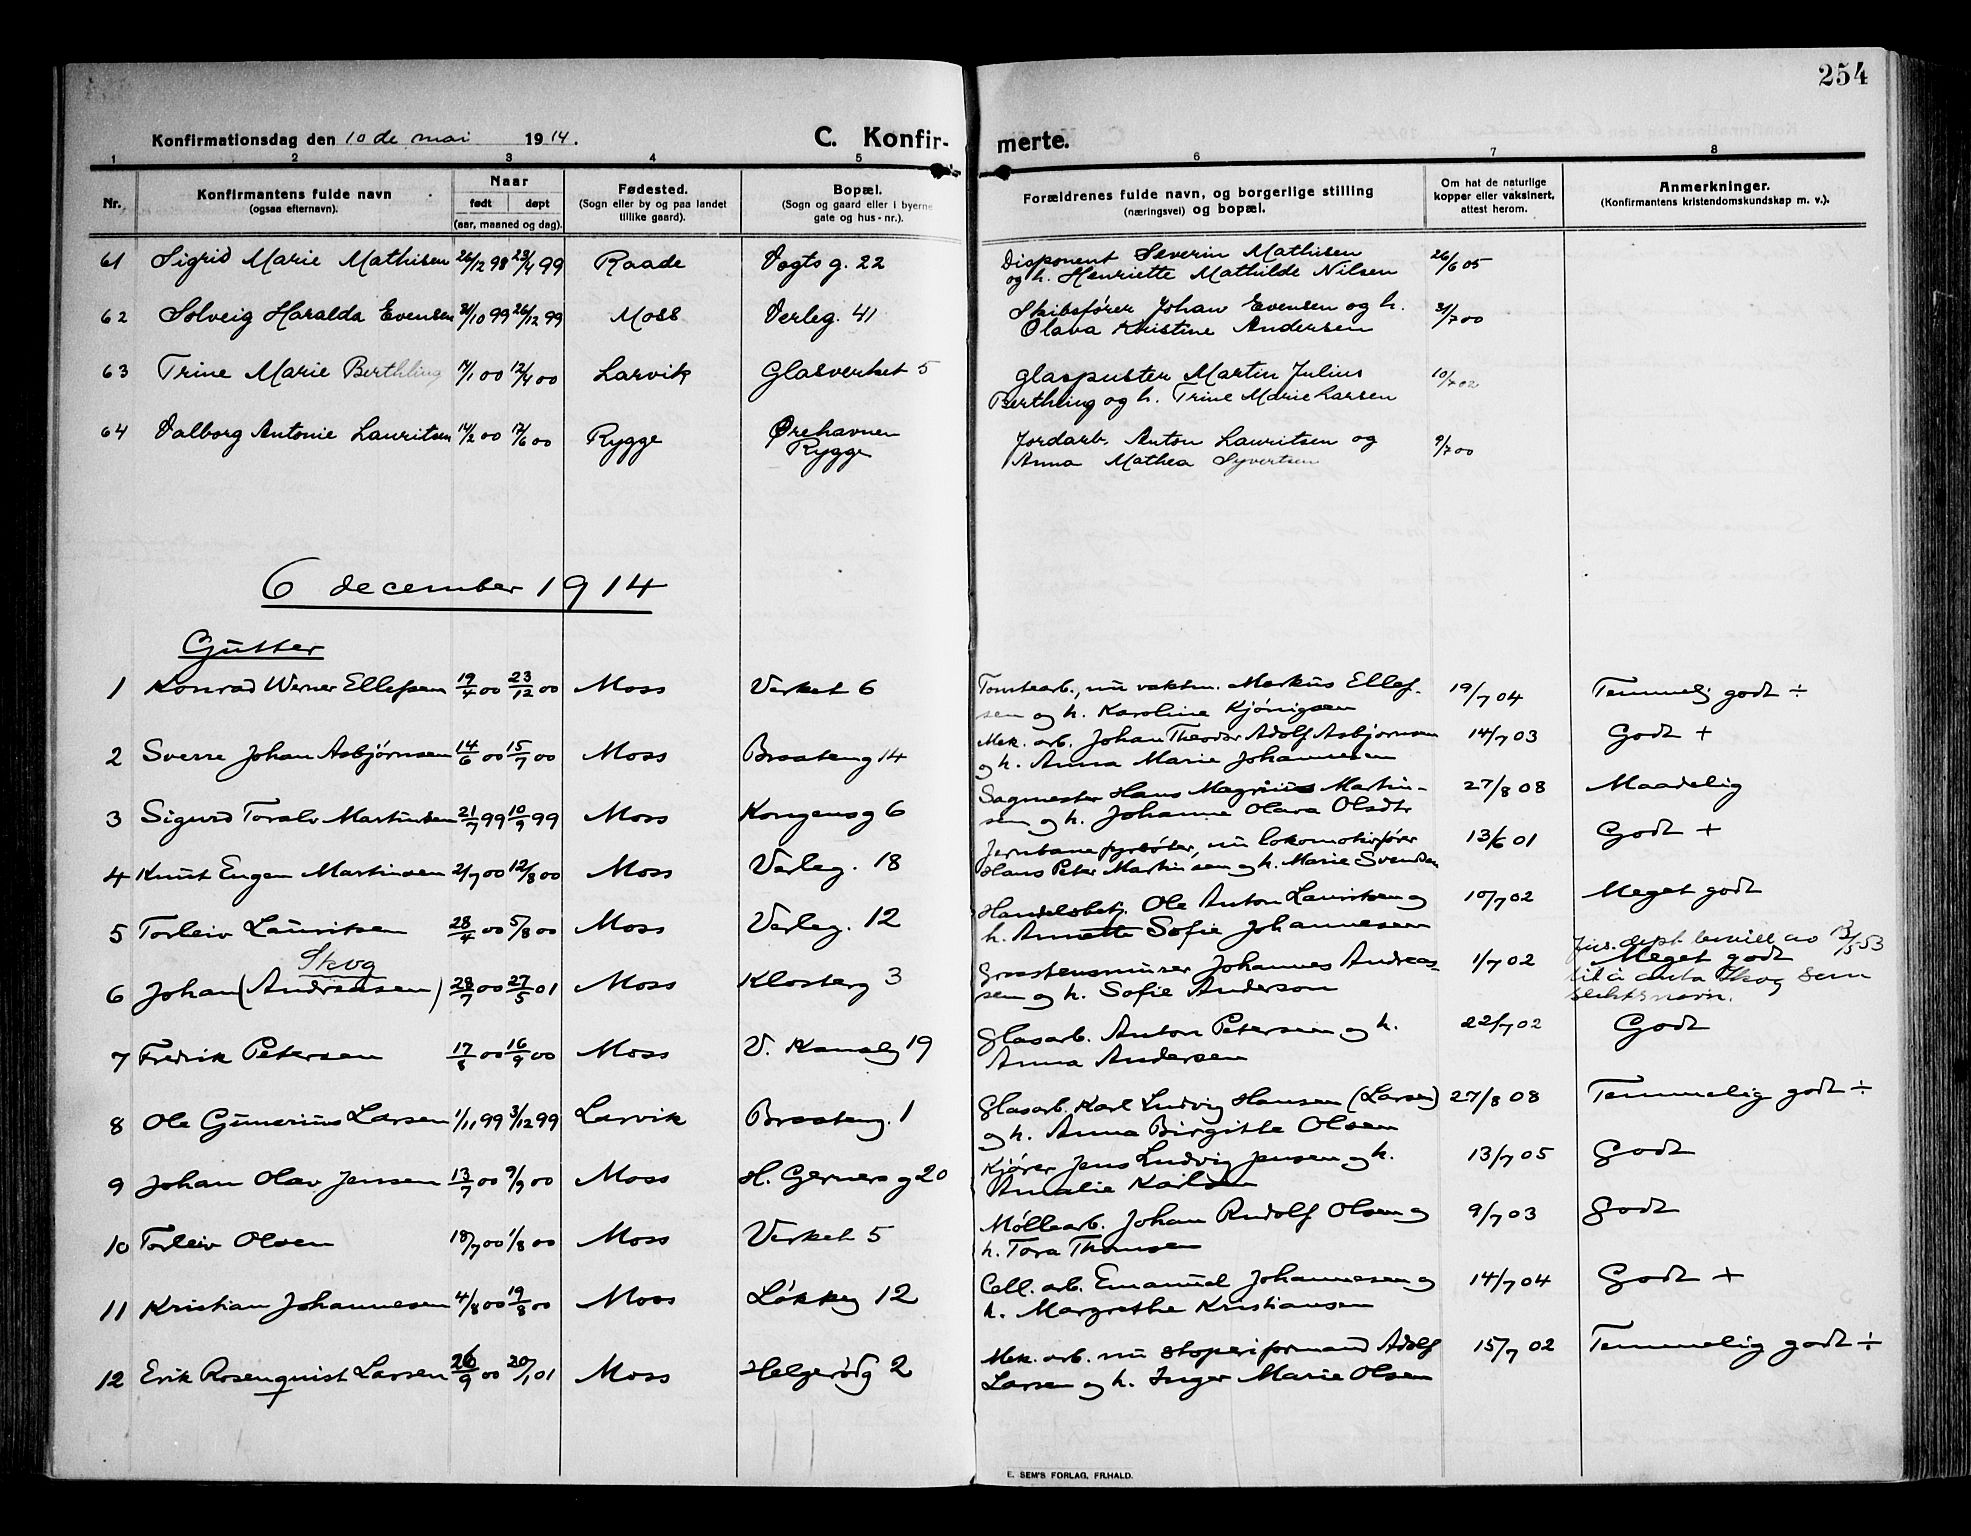 254
Konfirmationsdag den 10 de mai 1914.
C. Konfir-merte.
1 2 3 4 5 6 7 8
Nr. Konfirmantens fulde navn (ogsaa efternavn). Naar født døpt (aar, maaned og dag). Fødested. (Sogn eller by og paa landet tillike gaard). Bopæl. (Sogn og gaard eller i byerne gate og hus-nr.). Forældrenes fulde navn, og borgerlige stilling (næringsvei) og bopæl. Om hat de naturlige kopper eller vaksinert, attest herom. Anmerkninger. (Konfirmantens kristendomskundskap m. v.).
61 Sigrid Marie Mathisen 26/12 98 23/4 99 Raade Vogts g. 22 Disponent Severin Mathisen 26/6 05
og h. Henriette Mathilde Nilsen
62 Solveig Haralda Evensen 31/10 99 26/12 99 Moss Verleg. 41 Skibsfører Johan Evensen og h. 31/7 00
Olava Kristine Andersen
63 Trine Marie Berthling 17/1 00 12/4 00 Larvik Glasverket 5 Glaspuster Martin Julius 10/7 02
Berthling og h. Trine Marie Larsen
64 Valborg Antonie Lauritsen 14/2 00 17/6 00 Rygge Ørehavnen Jordarb. Anton Lauritsen og 9/7 00
Rygge Anna Mathea Syvertsen
6 december 1914
Gutter
1 Konrad Werner Ellefsen 19/4 00 23/12 00 Moss Verket 6 Tomtearb., nu vaktm. Markus Ellef- 19/7 04 Temmelig godt ÷
sen og h. Karoline Kjønigsen
2 Sverre Johan Asbjørnsen 14/6 00 15/7 00 Moss Braateng 14 Mek. arb. Johan Theodor Adolf Asbjørnsen 14/7 03 Godt +
og h. Anna Marie Johannesen
3 Sigurd Toralv Martinsen 21/7 99 10/9 99 Moss Kongensg 6 Sagmester Hans Magnus Martin- 27/8 08 Maadelig
sen og h. Johanne Olava Olsdtr
4 Knut Eugen Martinsen 2/7 00 12/8 00 Moss Verleg. 18 Jernbanefyrbøter, nu lokomotivfører 13/6 01 Godt +
Hans Peter Martinsen og h. Marie Svendsen
5 Torleiv Lauritsen 28/4 00 5/8 00 Moss Verleg. 12 Handelsbetj. Ole Anton Lauritsen og 10/7 02 Meget godt
h. Annette Sofie Johannesen
Skog
6 Johan (Andreasen) 28/7 00 27/5 01 Moss Klosterg 3 Graastensmurer Johannes Andreas- 1/7 02 Meget godt
sen og h. Sofie Anderson
Jus. dept. bevill. av 13/5 53
til å anta Skog som
slektsnavn.
7 Fredrik Petersen 17/8 00 16/9 00 Moss V. Kanalg 19 Glasarb. Anton Petersen og h. 22/7 02 Godt
Anna Andersen
8 Ole Gunerius Larsen 1/11 99 3/12 99 Larvik Braateng. 1 Glasarb. Karl Ludvig Hansen (Larsen) 27/8 08 Temmelig godt ÷
og h. Anna Birgitte Olsen
9 Johan Olav Jensen 13/7 00 9/9 00 Moss H. Gerners g 20 Kjører Jens Ludvig Jensen og h. 13/7 05 Godt
Amalie Karlsen
10 Torleiv Olsen 18/7 00 1/8 00 Moss Verket 5 Møllearb. Johan Rudolf Olsen og 9/7 03 Godt
h. Tora Thomsen
11 Kristian Johannesen 4/8 00 19/8 00 Moss Løkkeg 12 Cell. arb. Emanuel Johannesen og 14/7 04 Godt +
h. Margrethe Kristiansen
12 Erik Rosenquist Larsen 26/9 00 20/1 01 Moss Helgerødg 2 Mek. arb. nu støperiformand Adolf 15/7 02 Temmelig godt ÷
Larsen og h. Inger Marie Olsen
E. SEM'S FORLAG, FR.HALD.